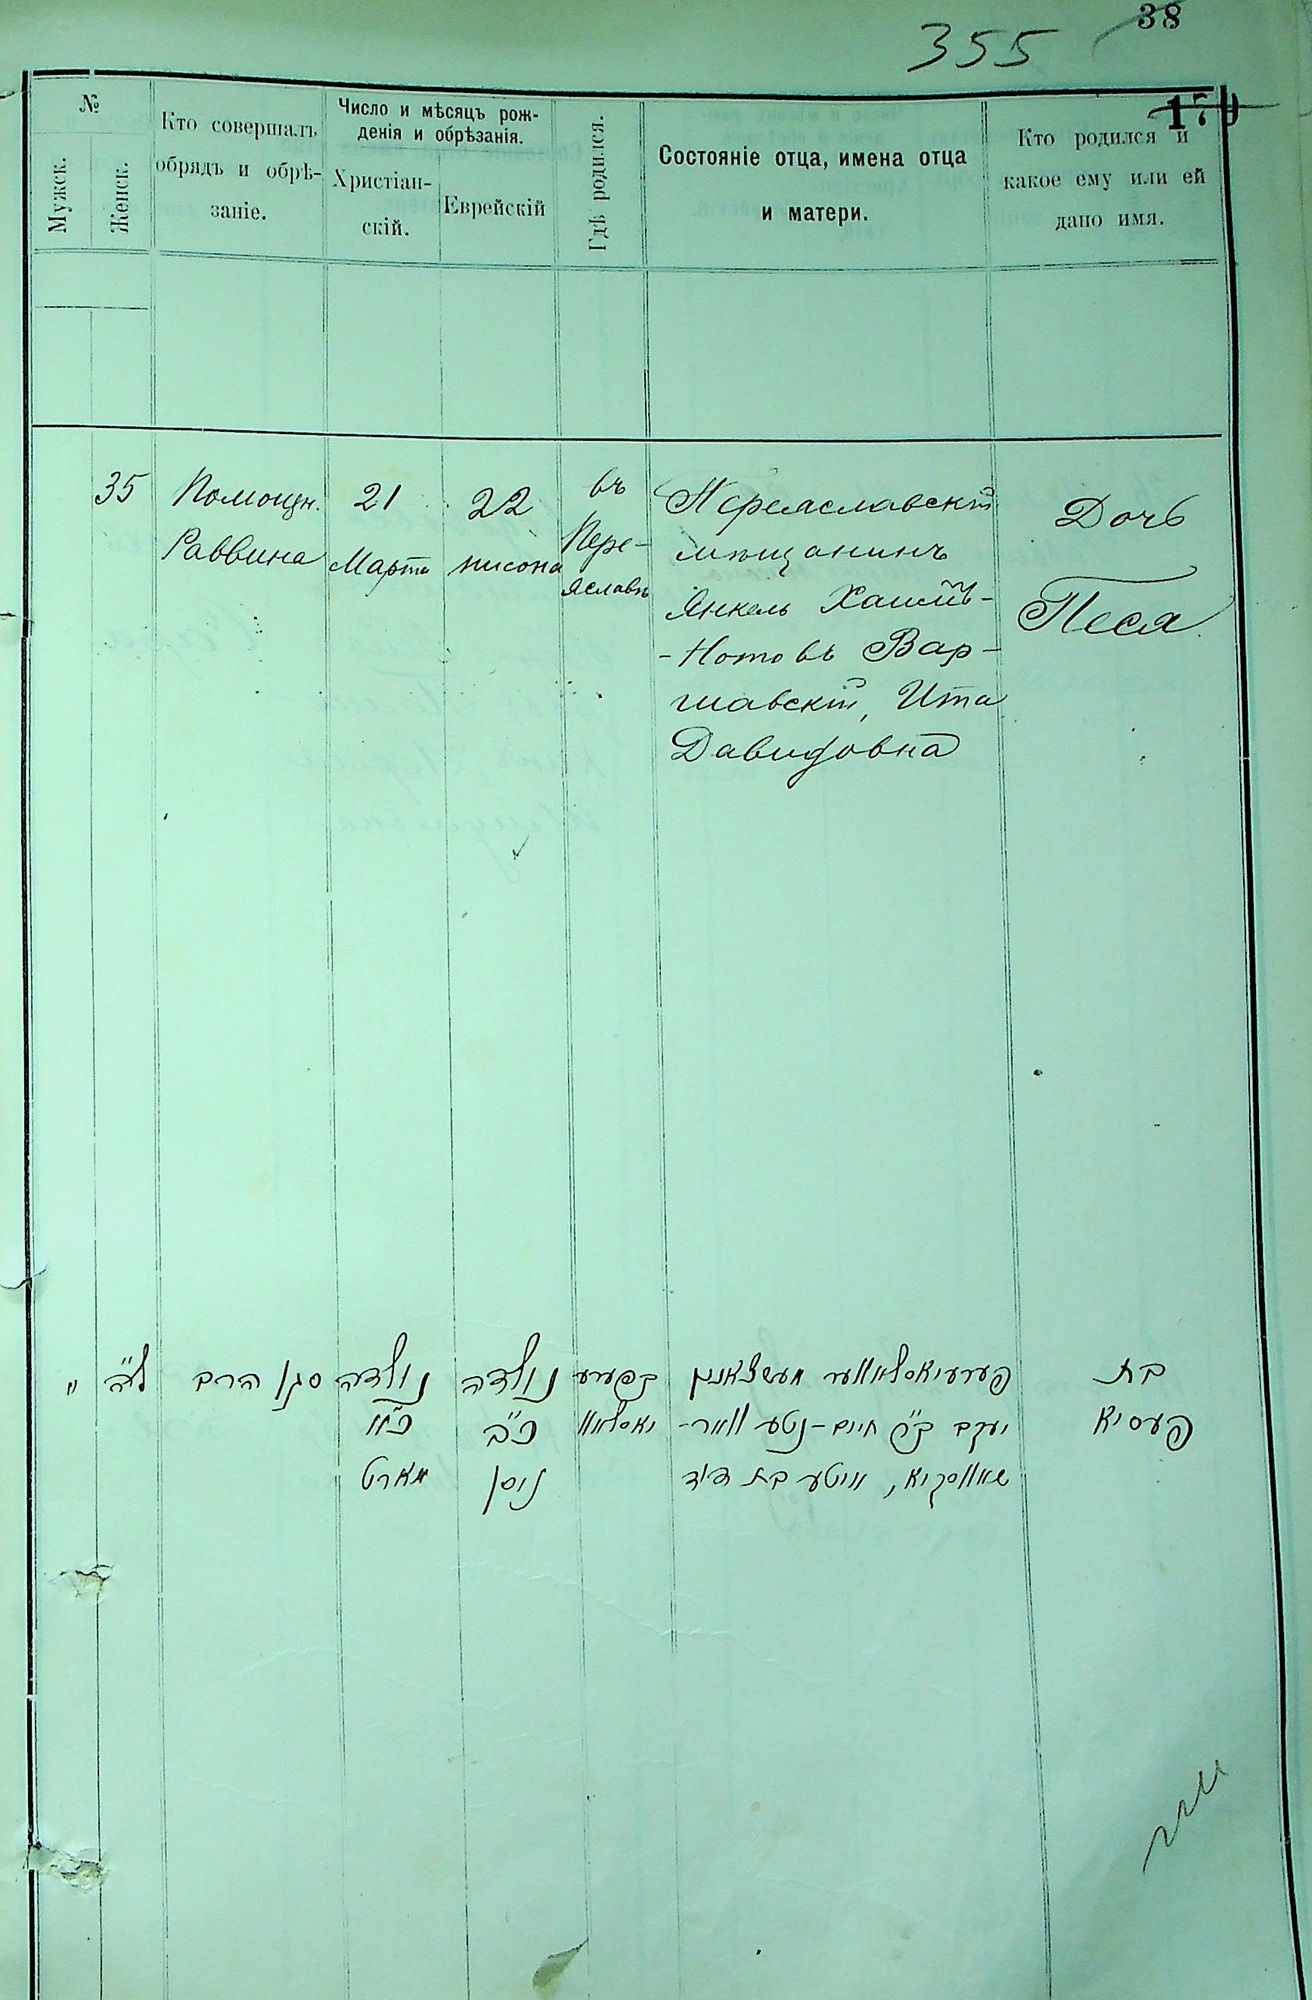 38
355
179
№
Мужск.
Женск.
Кто совершалъ
обрядъ и обрѣ-
заніе.
Число и мѣсяцъ рож-
денія и обрѣзанія.
Христіан-
скій.
Еврейскій
Гдѣ родился.
Состояніе отца, имена отца
и матери.
Кто родился и
какое ему или ей
дано имя.
35
Помощн.
Раввина
21
Марта
22
нисона
въ
Пере-
яславѣ
Переяславскій
мѣщанинъ
Янкель Хаимъ-
-Нотовъ Вар-
шавскій, Ита
Давидовна
Дочь
Песя
"
ל"ה
סגן הרב
נולדה
כ"א
מארט
נולדה
כ"ב
ניסן
בפערע
יאסלאוו
פערעיאסלאווער מעשצאנין
יעקב ב"ר חיים-נטע וואר-
שאווסקיא, איטע בת דוד
בת
פעסיא